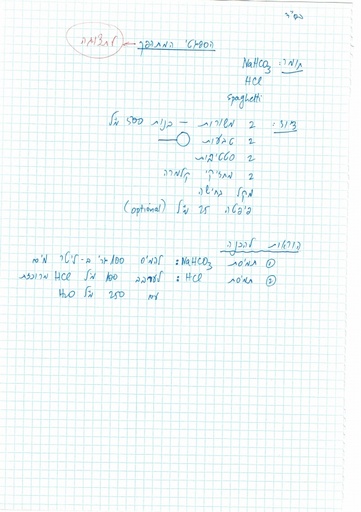 בס"ד
הספגטי המתהפך ← לחצות
חומר: NaHCO₃
HCl
Spaghetti
ציוד: 2 משורות – בנות 500 מ"ל
2 טבעות
2 סטטיבים
2 מחזיקי קלמרה
מקל בחישה
פיפטה 25 מ"ל (optional)
הוראות להכנה
① תמיסת NaHCO₃: להמיס 100 גר' ב-ליטר מים
② תמיסת HCl: לערבב 100 מ"ל HCl מרוכזת
עם 250 מ"ל H₂O